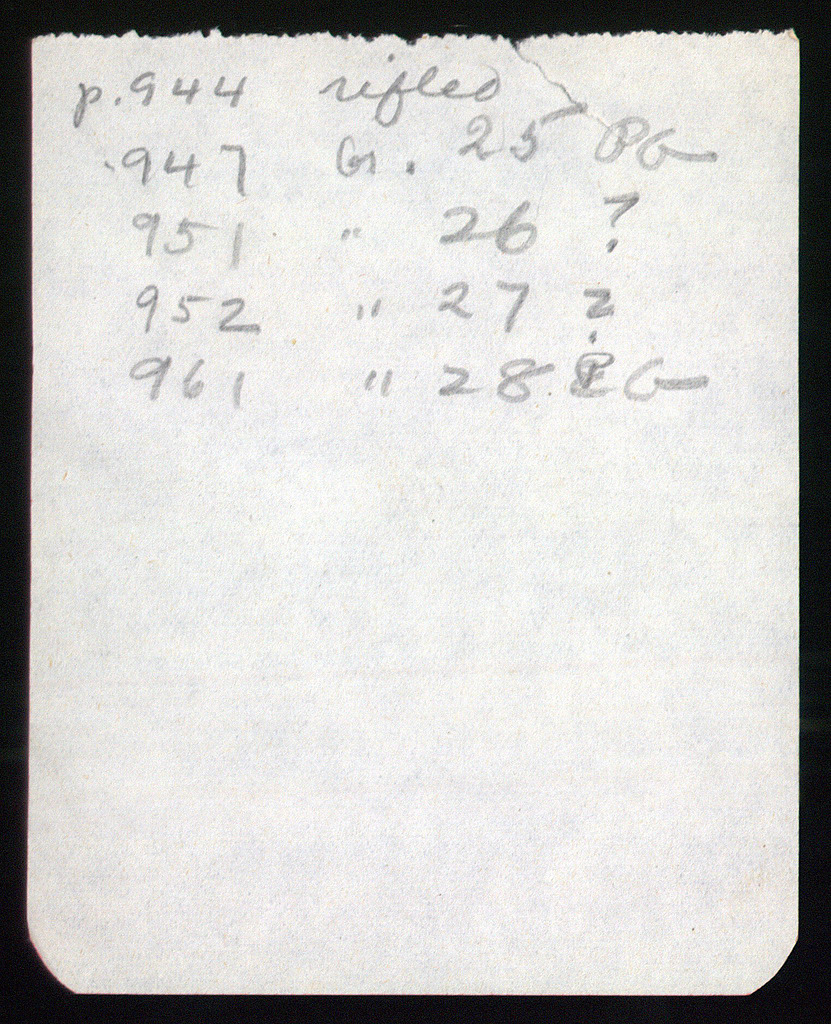 p.944 rifled
947 Gr. 25 PG
951 " 26 ?
952 " 27 ?
961 " 28 PG